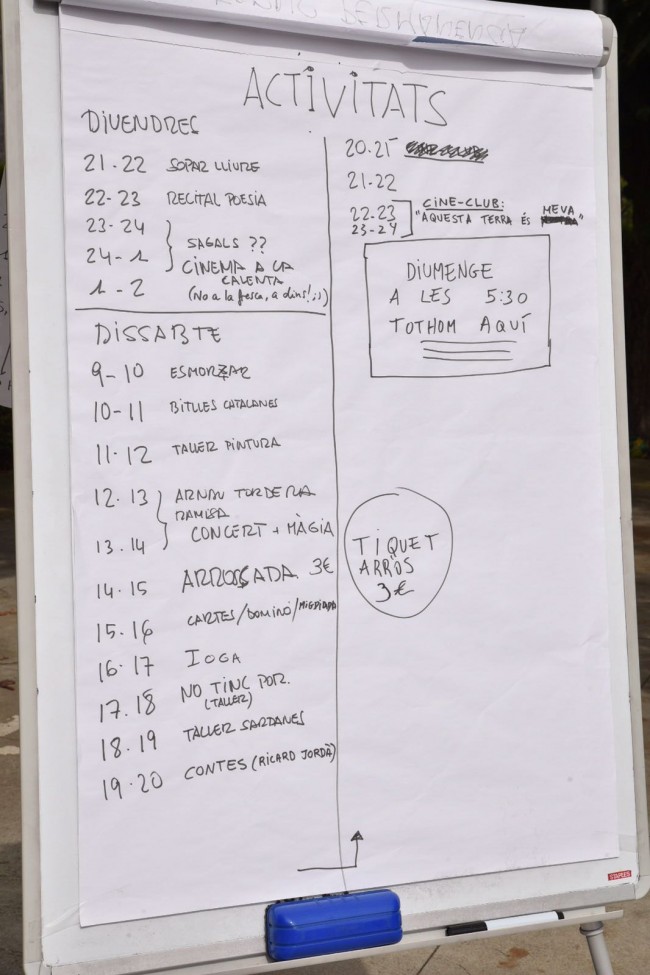 ACTIVITATS
DIVENDRES
21-22 SOPAR LLIURE
22-23 RECITAL POESIA
23-24
24-1
SAGALS ??
CINEMA A LA
CALENTA
1-2 (No a la fresca, a dins! ;))
DISSABTE
9-10 ESMORZAR
10-11 BITLLES CATALANES
11-12 TALLER PINTURA
12.13 ARNAU TORDERA
13.14 CONCERT + MÀGIA
14.15 ARROSSADA 3€
15.16 CARTES/DOMINÓ/
16.17 IOGA
17.18 NO TINC POR.
(TALLER)
18.19 TALLER SARDANES
19.20 CONTES (RICARD JORDÀ)
20.21
21-22
22-23
23-24
CINE-CLUB:
"AQUESTA TERRA ÉS MEVA"
DIUMENGE
A LES 5:30
TOTHOM AQUÍ
TIQUET
ARRÒS
3€
STAPLES